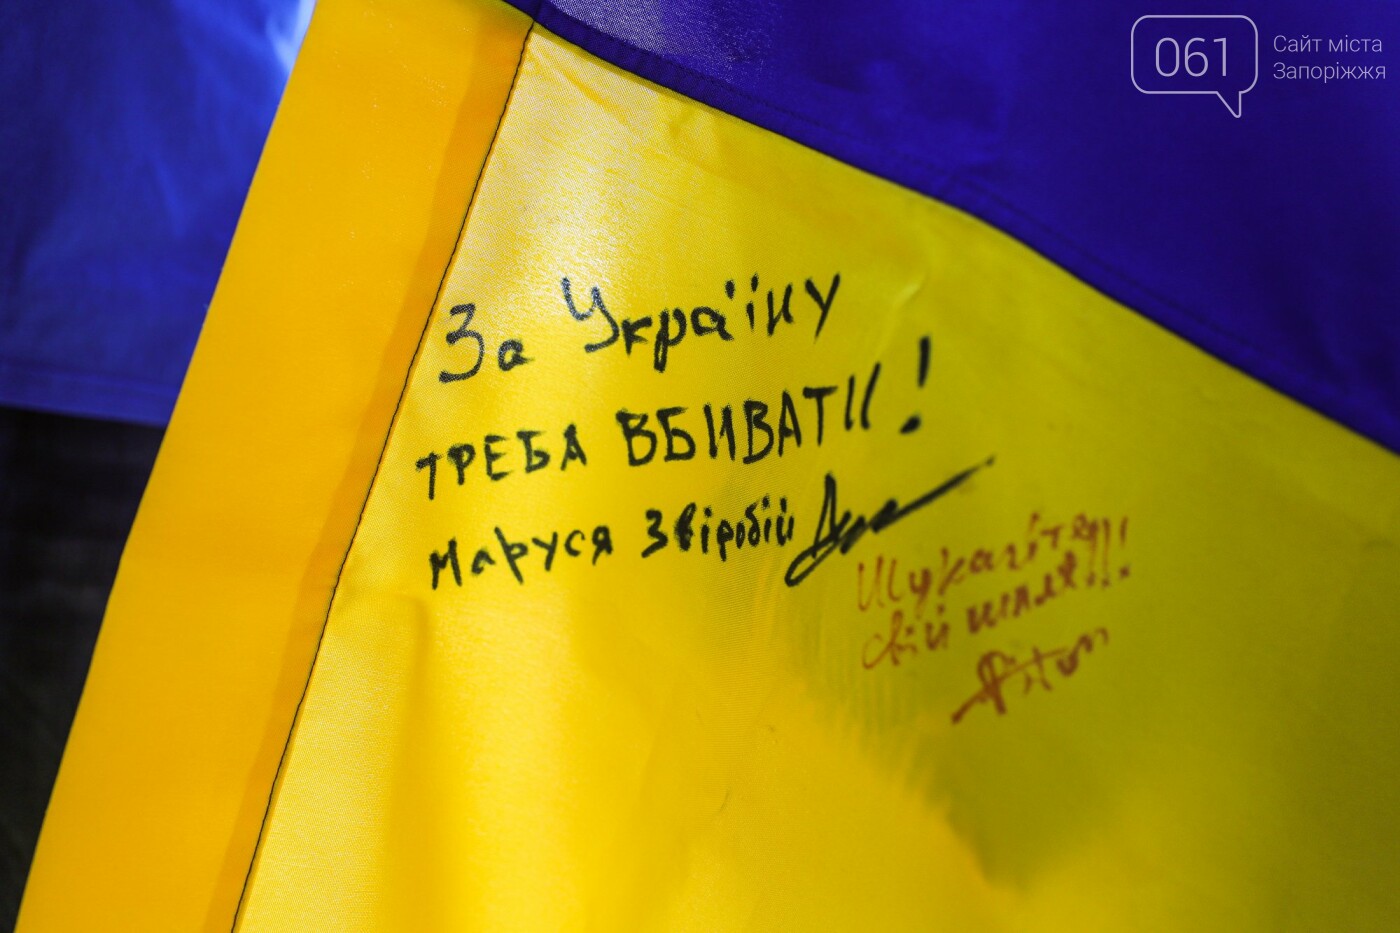 061
Сайт міста
Запоріжжя
За Україну
ТРЕБА ВБИВАТИ!
Маруся Звіробій
Шукайте
свій шлях!!!